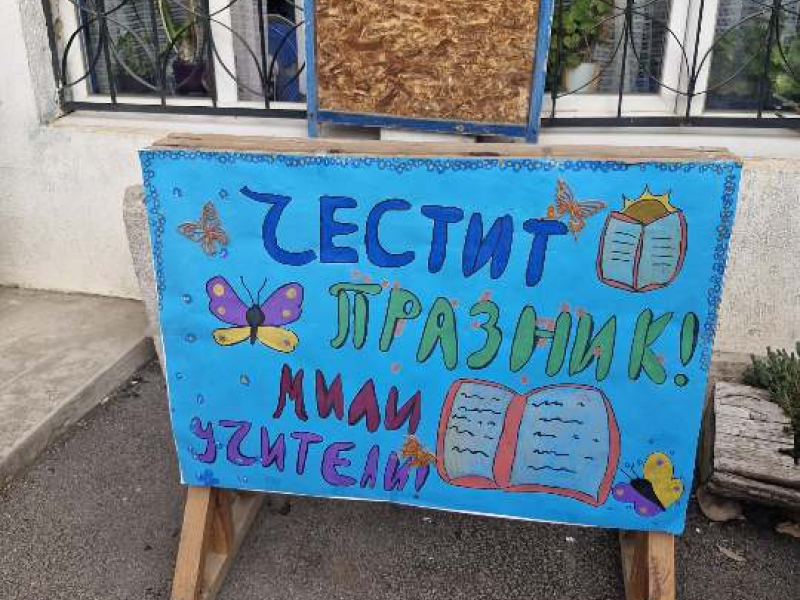 ЧЕСТИТ
ПРАЗНИК!
МИЛИ
УЧИТЕЛИ!